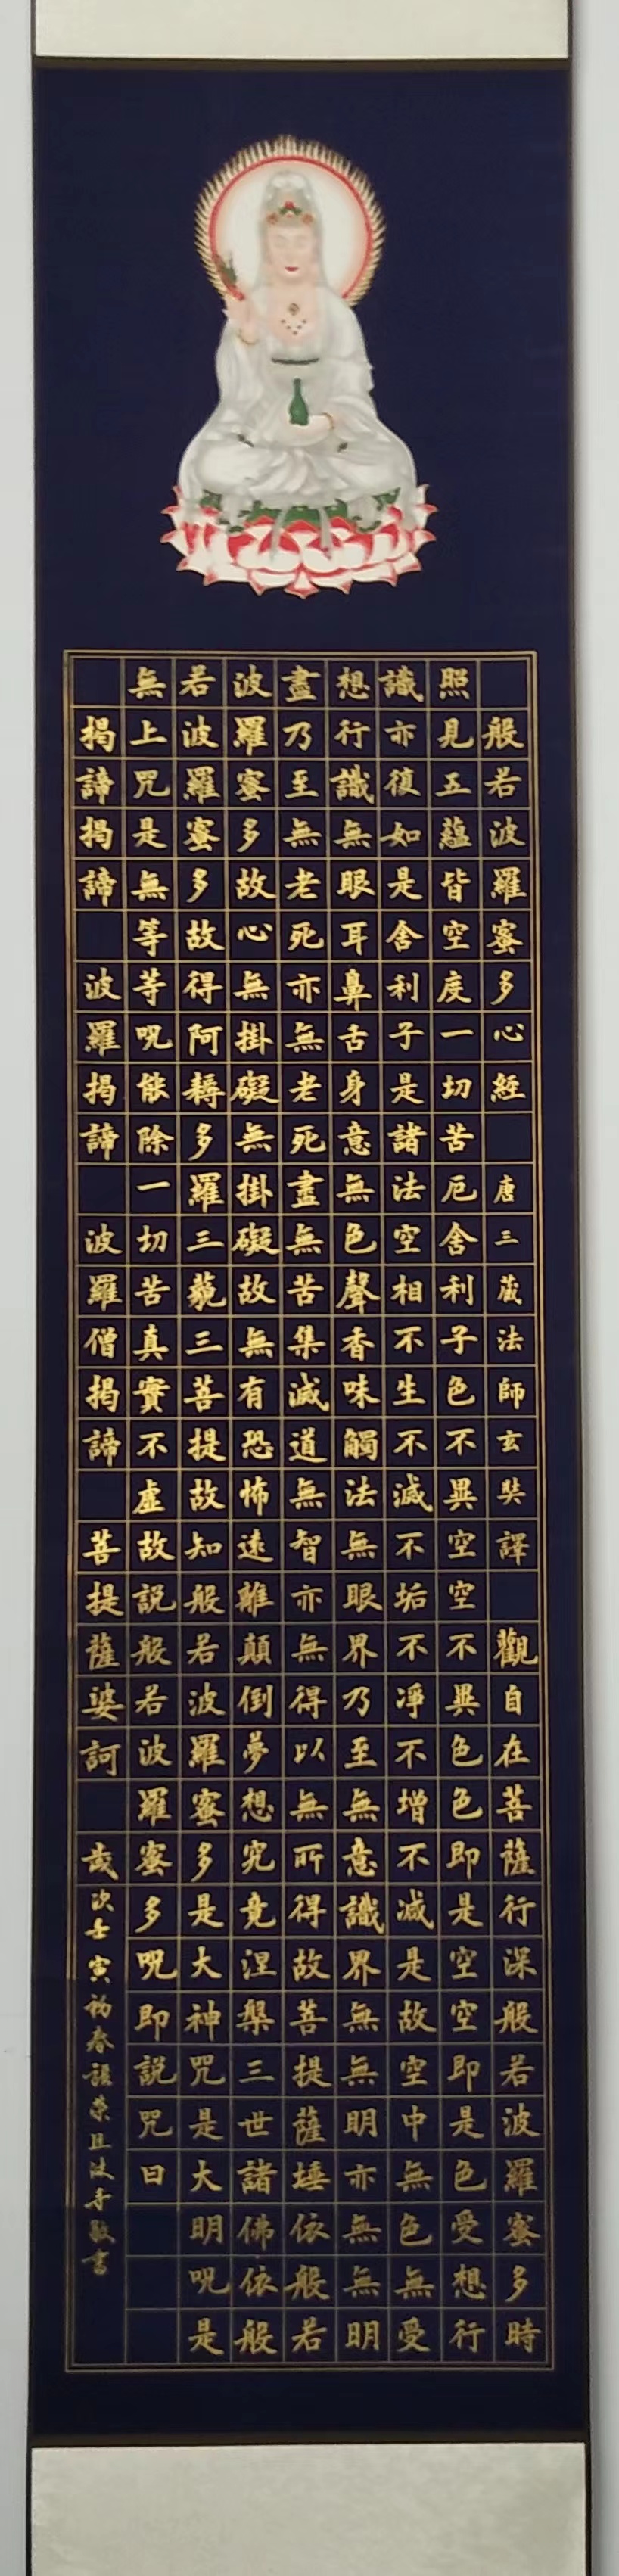 般若波羅蜜多心經 唐三藏法師玄奘譯 觀自在菩薩行深般若波羅蜜多時
照見五蘊皆空度一切苦厄舍利子色不異空空不異色色即是空空即是色受想行
識亦復如是舍利子是諸法空相不生不滅不垢不凈不增不减是故空中無色無受
想行識無眼耳鼻舌身意無色聲香味觸法無眼界乃至無意識界無無明亦無無明
盡乃至無老死亦無老死盡無苦集滅道無智亦無得以無所得故菩提薩埵依般若
波羅蜜多故心無掛礙無掛礙故無有恐怖遠離顛倒夢想究竟涅槃三世諸佛依般
若波羅蜜多故得阿耨多羅三藐三菩提故知般若波羅蜜多是大神咒是大明呪是
無上咒是無等等呪能除一切苦真實不虛故説般若波羅蜜多呪即説咒曰
揭諦揭諦 波羅揭諦 波羅僧揭諦 菩提薩婆訶 歲次壬寅初春敬書